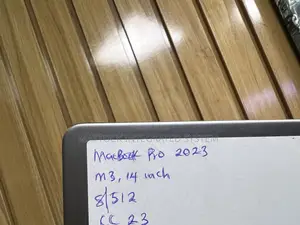 MacBook Pro 2023
M3, 14 inch
8/512
CC 23